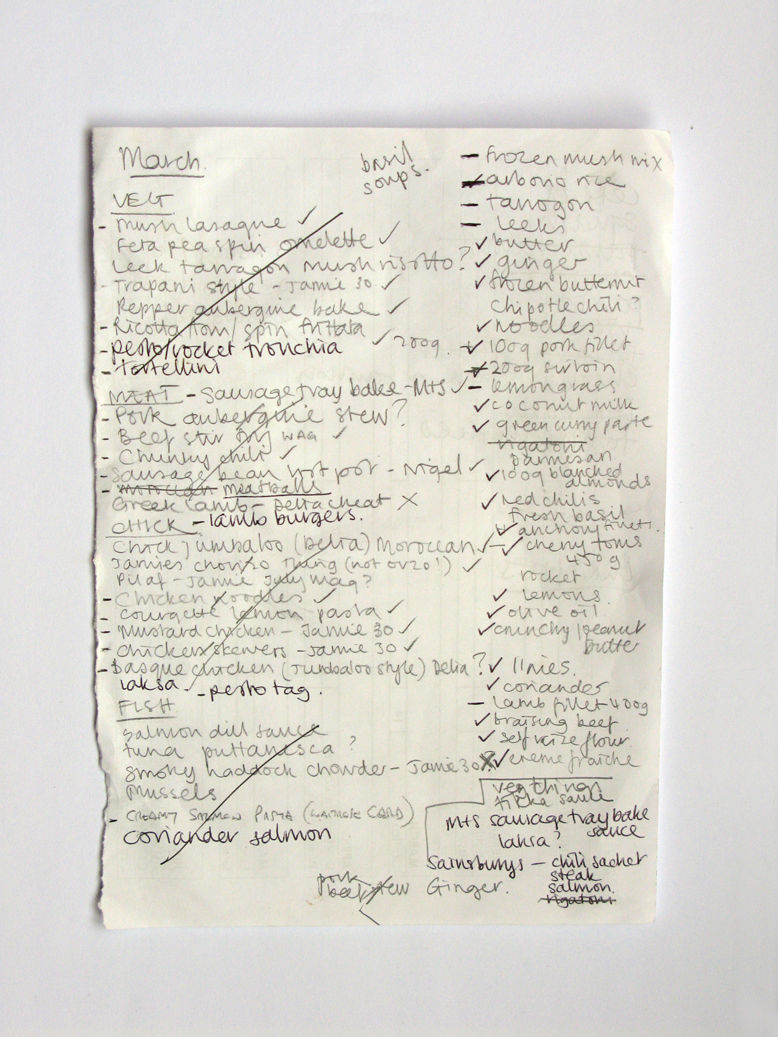 March.
basil
soups.
VEG
- Mush lasagne ✓
Feta pea spin omelette ✓
Leek tarragon mush risotto?
- Trapani style - Jamie 30 ✓
Pepper aubergine bake ✓
- Ricotta tom/spin frittata
- pesto/rocket tronchia ✓ 200g.
- tortellini
MEAT - Sausage tray bake - M+S ✓
- Pork aubergine stew?
- Beef stir fry WAG ✓
- Chunky chili ✓
- Sausage bean hot pot - Nigel ✓
- meatballs
Greek lamb - Delia cheat X
CHICK - lamb burgers.
Chick jumbaloo (Delia) Moroccan ✓
Jamies chorizo thing (not orzo!) ✓
Pilaf - Jamie July mag?
- Chicken noodles ✓
- courgette lemon pasta ✓
- Mustard chicken - Jamie 30 ✓
- chicken skewers - Jamie 30 ✓
- Basque chicken (Jumbaloo style) Delia?
laksa - pesto tag.
FISH
salmon dill sauce
tuna puttanesca?
smoky haddock chowder - Jamie 30
Mussels
- CREAMY SALMON PASTA
coriander salmon
- frozen mush mix
arborio rice
- tarrogon
- leeks
✓ butter
✓ ginger
✓ frozen butternut
Chipotle chili?
✓ noodles
✓ 100g pork fillet
200g sirloin
- lemongrass
✓ coconut milk
✓ green curry paste
rigatoni
parmesan
✓ 100g blanched
almonds
✓ red chilis
fresh basil
✓ cherry toms
450g
rocket
✓ lemons
✓ olive oil
✓ crunchy peanut
butter
✓ limes.
✓ coriander
- lamb fillet 400g
✓ braising beef
✓ self raize flour
X ✓ creme fraiche
veg thing
tikka saule
M+S sausage tray bake
sauce
laksa?
Sainsburys - chili sachet
steak
salmon.
rigatoni
pork
beef stew
Ginger.